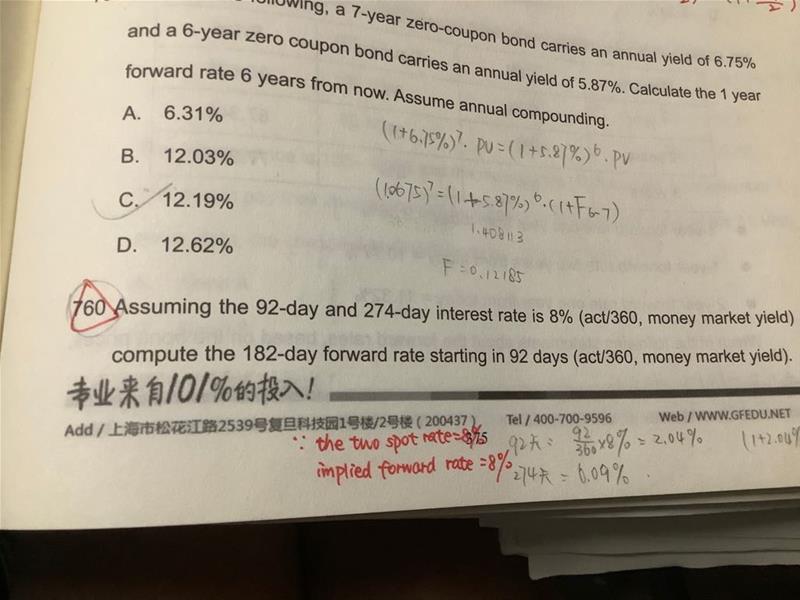 following, a 7-year zero-coupon bond carries an annual yield of 6.75%
and a 6-year zero coupon bond carries an annual yield of 5.87%. Calculate the 1 year
forward rate 6 years from now. Assume annual compounding.
A. 6.31%
(1+6.75%)⁷. PV=(1+5.87%)⁶.PV
B. 12.03%
C. 12.19%
(1.0675)⁷=(1+5.87%)⁶.(1+F6-7)
1.408113
D. 12.62%
F=0.12185
760 Assuming the 92-day and 274-day interest rate is 8% (act/360, money market yield)
compute the 182-day forward rate starting in 92 days (act/360, money market yield).
专业来自101%的投入!
Add / 上海市松花江路2539号复旦科技园1号楼/2号楼（200437） Tel / 400-700-9596 Web / WWW.GFEDU.NET
∵ the two spot rate=8% 92天= 92/360×8%=2.04% (1+2.04%
implied forward rate=8% 274天=6.09%